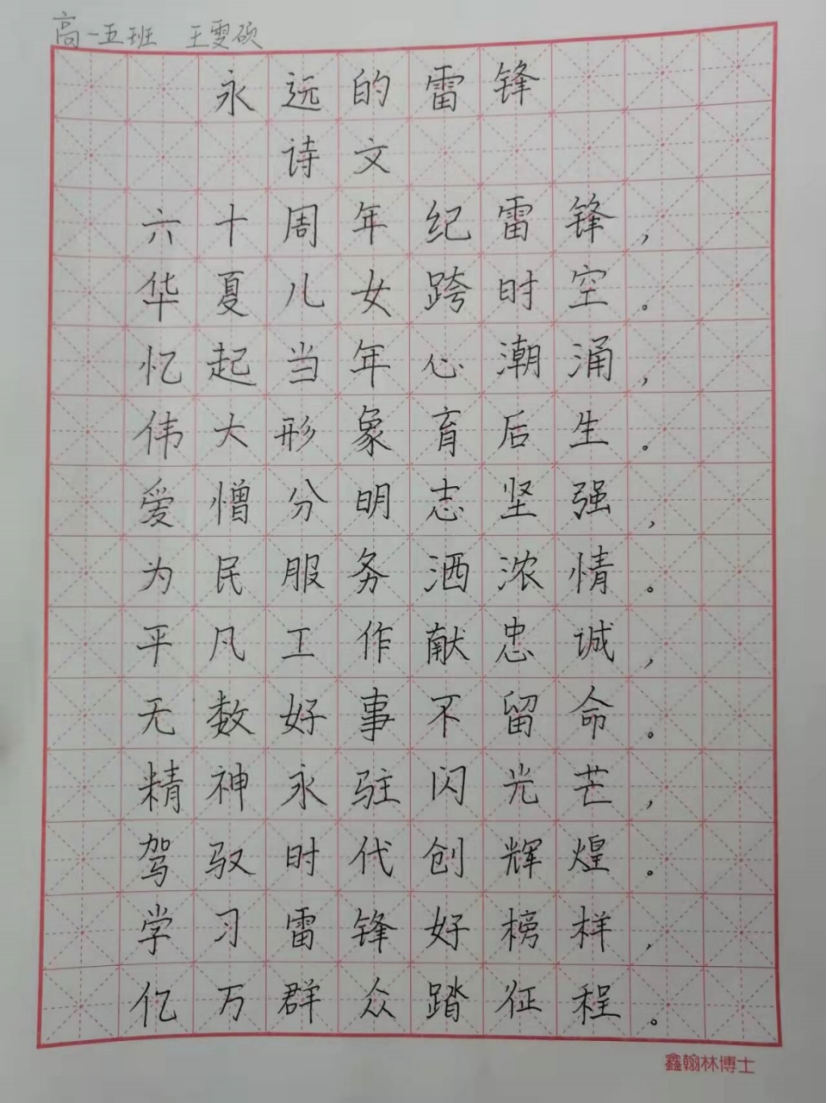 高一五班 王雯硕
永远的雷锋
诗文
六十周年纪雷锋，
华夏儿女跨时空。
忆起当年心潮涌，
伟大形象育后生。
爱憎分明志坚强，
为民服务洒浓情。
平凡工作献忠诚，
无数好事不留命。
精神永驻闪光芒，
驾驭时代创辉煌。
学习雷锋好榜样，
亿万群众踏征程。
鑫翰林博士